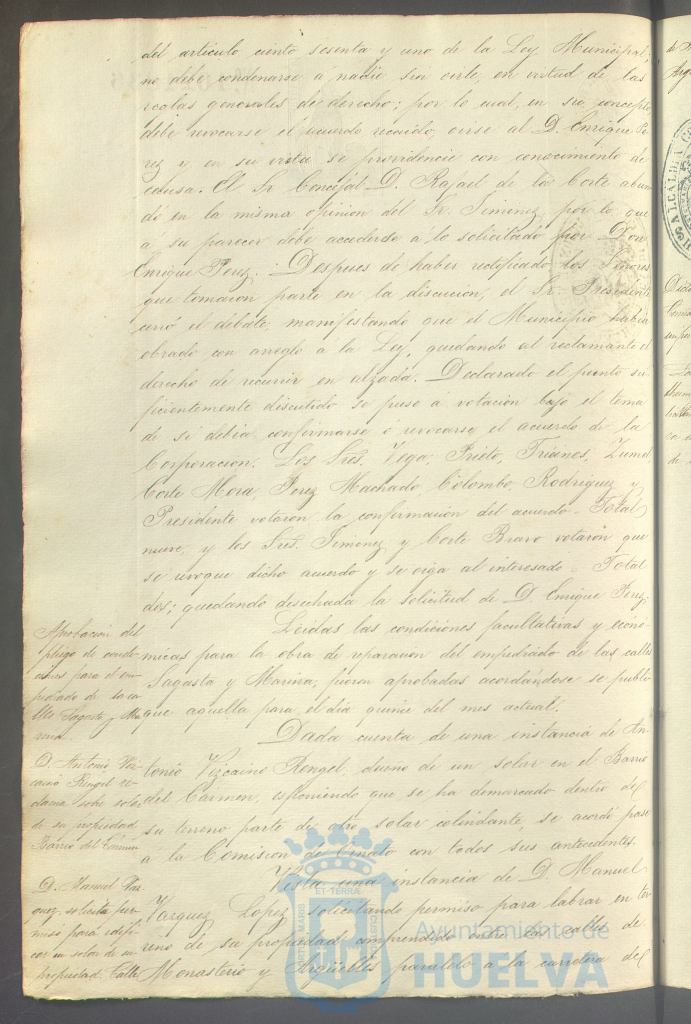 del artículo ciento sesenta y uno de la Ley Municipal,
no debe condenarse a nadie sin oirle, en virtud de las
reglas generales de derecho; por lo cual, en su concepto
debe revocarse el acuerdo recaido, oirse al D. Enrique Pe
rez y en su vista se providencie con conocimiento de
causa. El Sr. Concejal D. Rafael de la Corte abun
dó en la misma opinion del Sr. Jimenez, por lo que
á su parecer debe accederse a lo solicitado por Don
Enrique Perez. Despues de haber rectificado los Señores
que tomaron parte en la discucion, el Sr. Presidente
cerró el debate, manifestando que el Municipio habia
obrado con arreglo á la Ley, quedando al reclamante el
derecho de recurrir en alzada. Declarado el punto su
ficientemente discutido se puso á votacion bajo el tema
de si debia confirmarse ó revocarse el acuerdo de la
Corporacion. Los Sres. Vega, Prieto, Trianes,
Corte Mora, Perez Machado, Colombo, Rodriguez y
Presidente votaron la confirmacion del acuerdo. Total
nueve, y los Sres. Jimenez y Corte Bravo votaron que
se revoque dicho acuerdo y se oiga al interesado. Total
dos; quedando desechada la solicitud de D. Enrique Perez.
Aprobacion del
pliego de condi
ciones para el em
pedrado de la ca
lles Sagasta y Ma
rina.
Leidas las condiciones facultativas y econó
micas para la obra de reparacion del empedrado de las calles
Sagasta y Marina, fueron aprobadas acordándose se publi
que aquella para el dia quince del mes actual.
D. Antonio Viz
caino Rengel re
clama sobre solar
de su propiedad
Barrio del Carmen
Dada cuenta de una instancia de An
tonio Vizcaino Rengel, dueño de un solar en el Barrio
del Carmen, esponiendo que se ha demarcado dentro de
su terreno parte de otro solar colindante, se acordó pase
á la Comision de Ornato con todos sus antecedentes.
D. Manuel Vaz
quez, solicita per
miso para edifi
car un solar de su
propiedad Calle
Vista una instancia de D. Manuel
Vazquez Lopez, solicitando permiso para labrar en ter
reno de su propiedad comprendido entre las calles de
Monasterio y Argüelles paralelo á la carretera del
ET TERRÆ
Ayuntamiento de
HUELVA